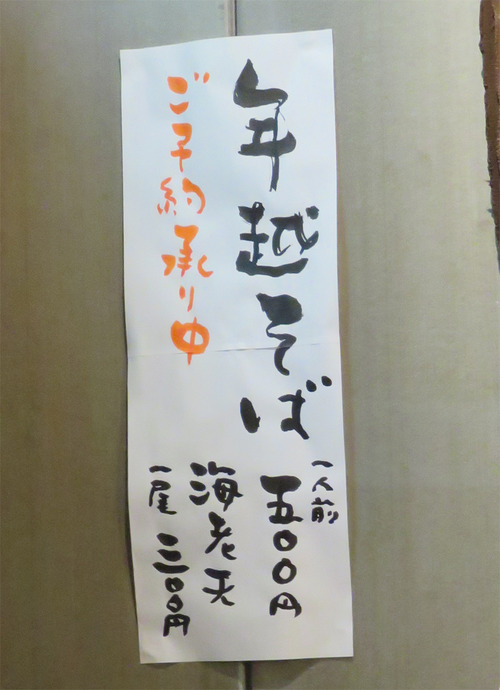 年越そば
一人前
五〇〇円
ご予約承り中
海老天
一尾 三〇〇円